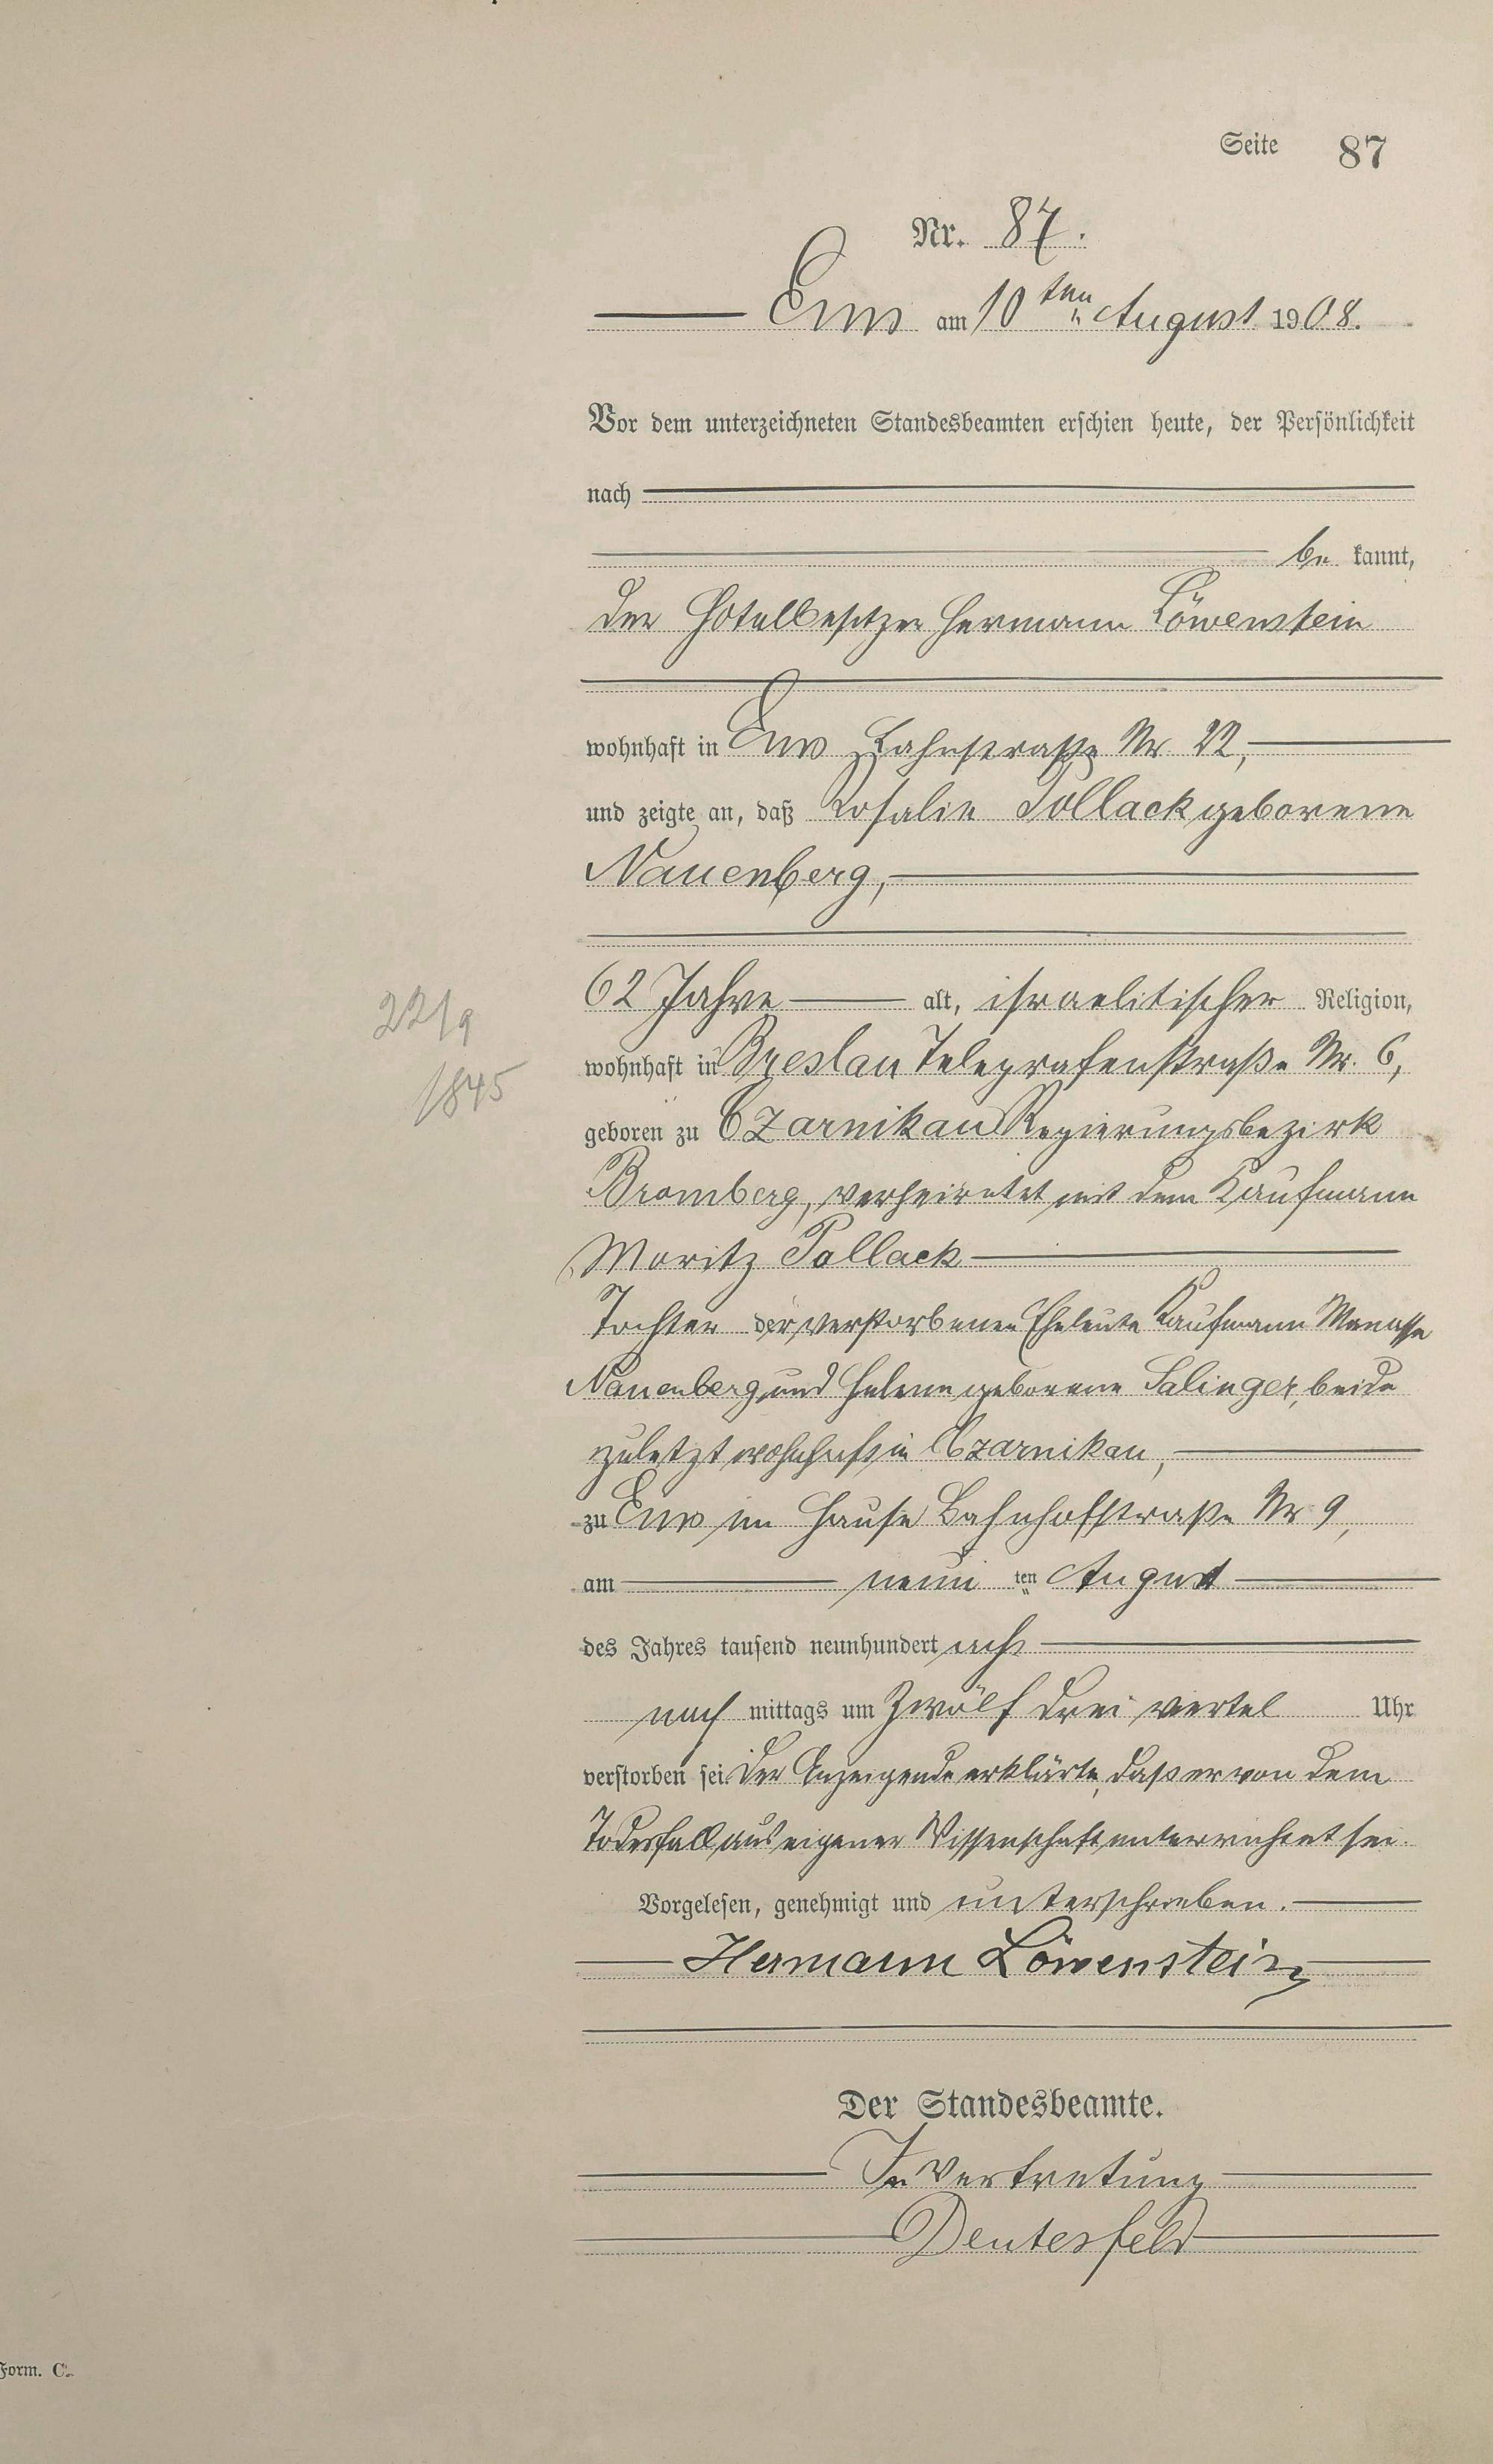 Seite 87
Nr. 87.
Ems am 10ten August 1908.
Vor dem unterzeichneten Standesbeamten erschien heute, der Persönlichkeit
nach
be kannt,
der Hotelbesitzer Hermann Löwenstein
wohnhaft in Ems Lahnstraße Nr. 22,
und zeigte an, daß Rosalie Pollack geborene
Nauenberg,
62 Jahre alt, israelitischer Religion,
22/9
wohnhaft in Breslau Telegrafenstraße Nr. 6,
1845
geboren zu Czarnikau Regierungsbezirk
Bromberg, verheiratet mit dem Kaufmann
Moritz Pollack
Tochter der verstorbenen Eheleute Kaufmann Manasse
Nauenberg und Helene geborene Salinger, beide
zuletzt wohnhaft in Czarnikau,
zu Ems im Hause Bahnhofstraße Nr. 9,
am neun ten August
des Jahres tausend neunhundert acht
nach mittags um Zwölf drei viertel Uhr
verstorben sei. Der Anzeigende erklärte, daß er von dem
Todesfall aus eigener Wissenschaft unterrichtet sei.
Vorgelesen, genehmigt und unterschrieben.
Hermann Löwenstein
Der Standesbeamte.
In Vertretung
Deutesfeld
Form. C.